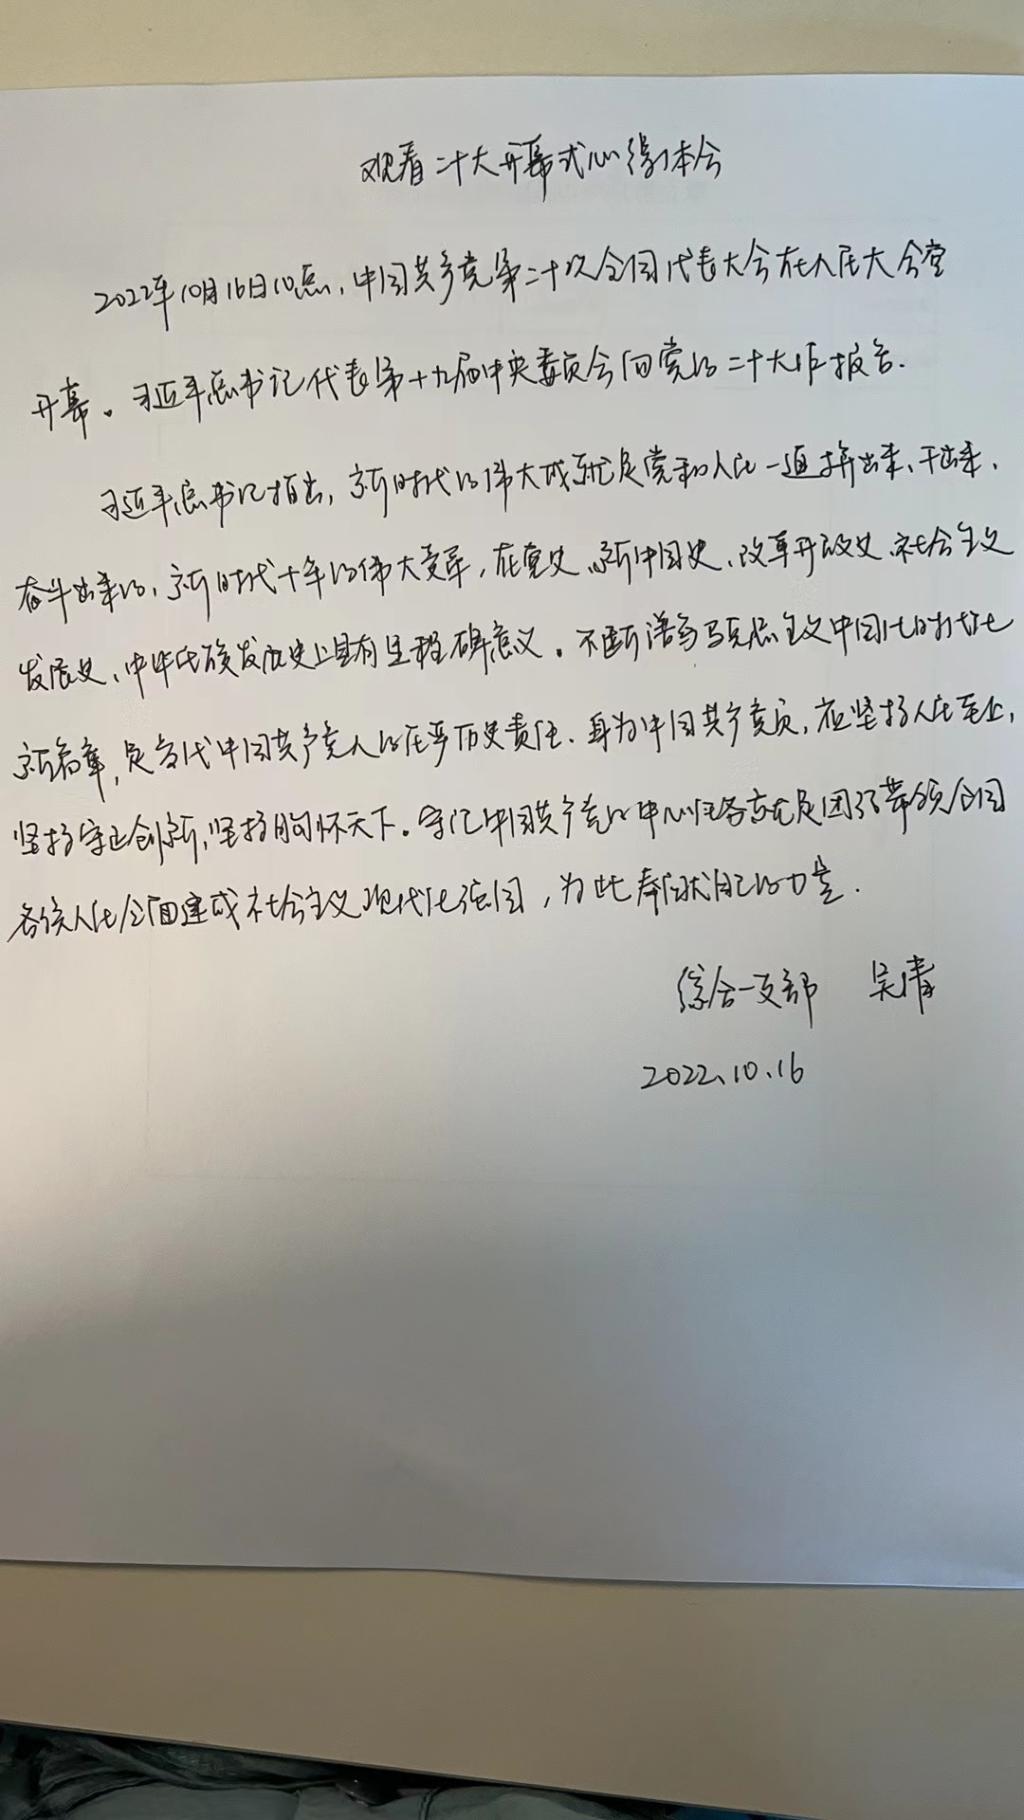 观看二十大开幕式心得体会
2022年10月16日10点,中国共产党第二十次全国代表大会在人民大会堂
开幕。习近平总书记代表第十九届中央委员会向党的二十大作报告.
习近平总书记指出,新时代的伟大成就是党和人民一道拼出来、干出来、
奋斗出来的,新时代十年的伟大变革,在党史、新中国史、改革开放史、社会主义
发展史、中华民族发展史上具有里程碑意义。不断谱写马克思主义中国化时代化
新篇章,是当代中国共产党人的庄严历史责任、身为中国共产党员,应坚持人民至上,
坚持守正创新,坚持胸怀天下。牢记中国共产党的中心任务就是团结带领全国
各族人民全面建成社会主义现代化强国,为此奉献自己的力量.
综合一支部 吴倩
2022、10、16